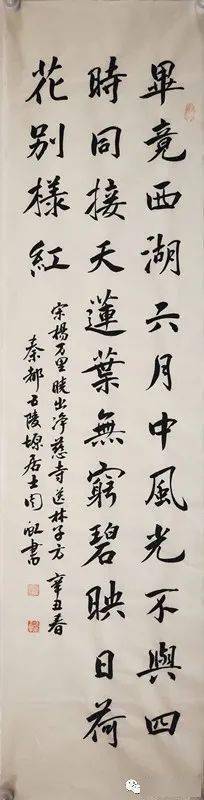 畢竟西湖六月中風光不與四
時同接天蓮葉無窮碧映日荷
花別樣紅
宋楊万里曉出净慈寺送林子方 辛丑春
秦都五陵塬居士周書